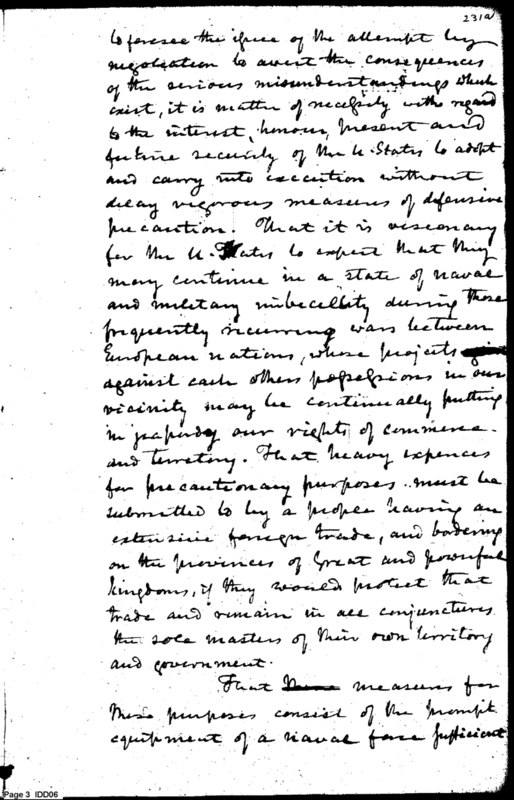 231a
to foresee the issue of the attempt by
negotiation to avert the consequences
of the serious misunderstandings which
exist, it is matter of necessity with regard
to the interest, honour, present and
future security of the U. States to adopt
and carry into execution without
delay vigorous measures of defensive
precaution. That it is visionary
for the U. States to expect that they
may continue in a state of naval
and military imbecellity during those
frequently recurring wars between
European nations, whose projects
against each others possessions in our
vicinity may be continually putting
in jeopardy our rights of commerce
and territory. That heavy expences
for precautionary purposes must be
submitted to by a people having an
extensive foreign trade, and bordering
on the provinces of Great and powerful
kingdoms, if they would protect that
trade and remain in all conjunctures
the sole masters of their own territory
and government.
That measures for
these purposes consist of the prompt
equipment of a naval force sufficient
Page 3 IDD06